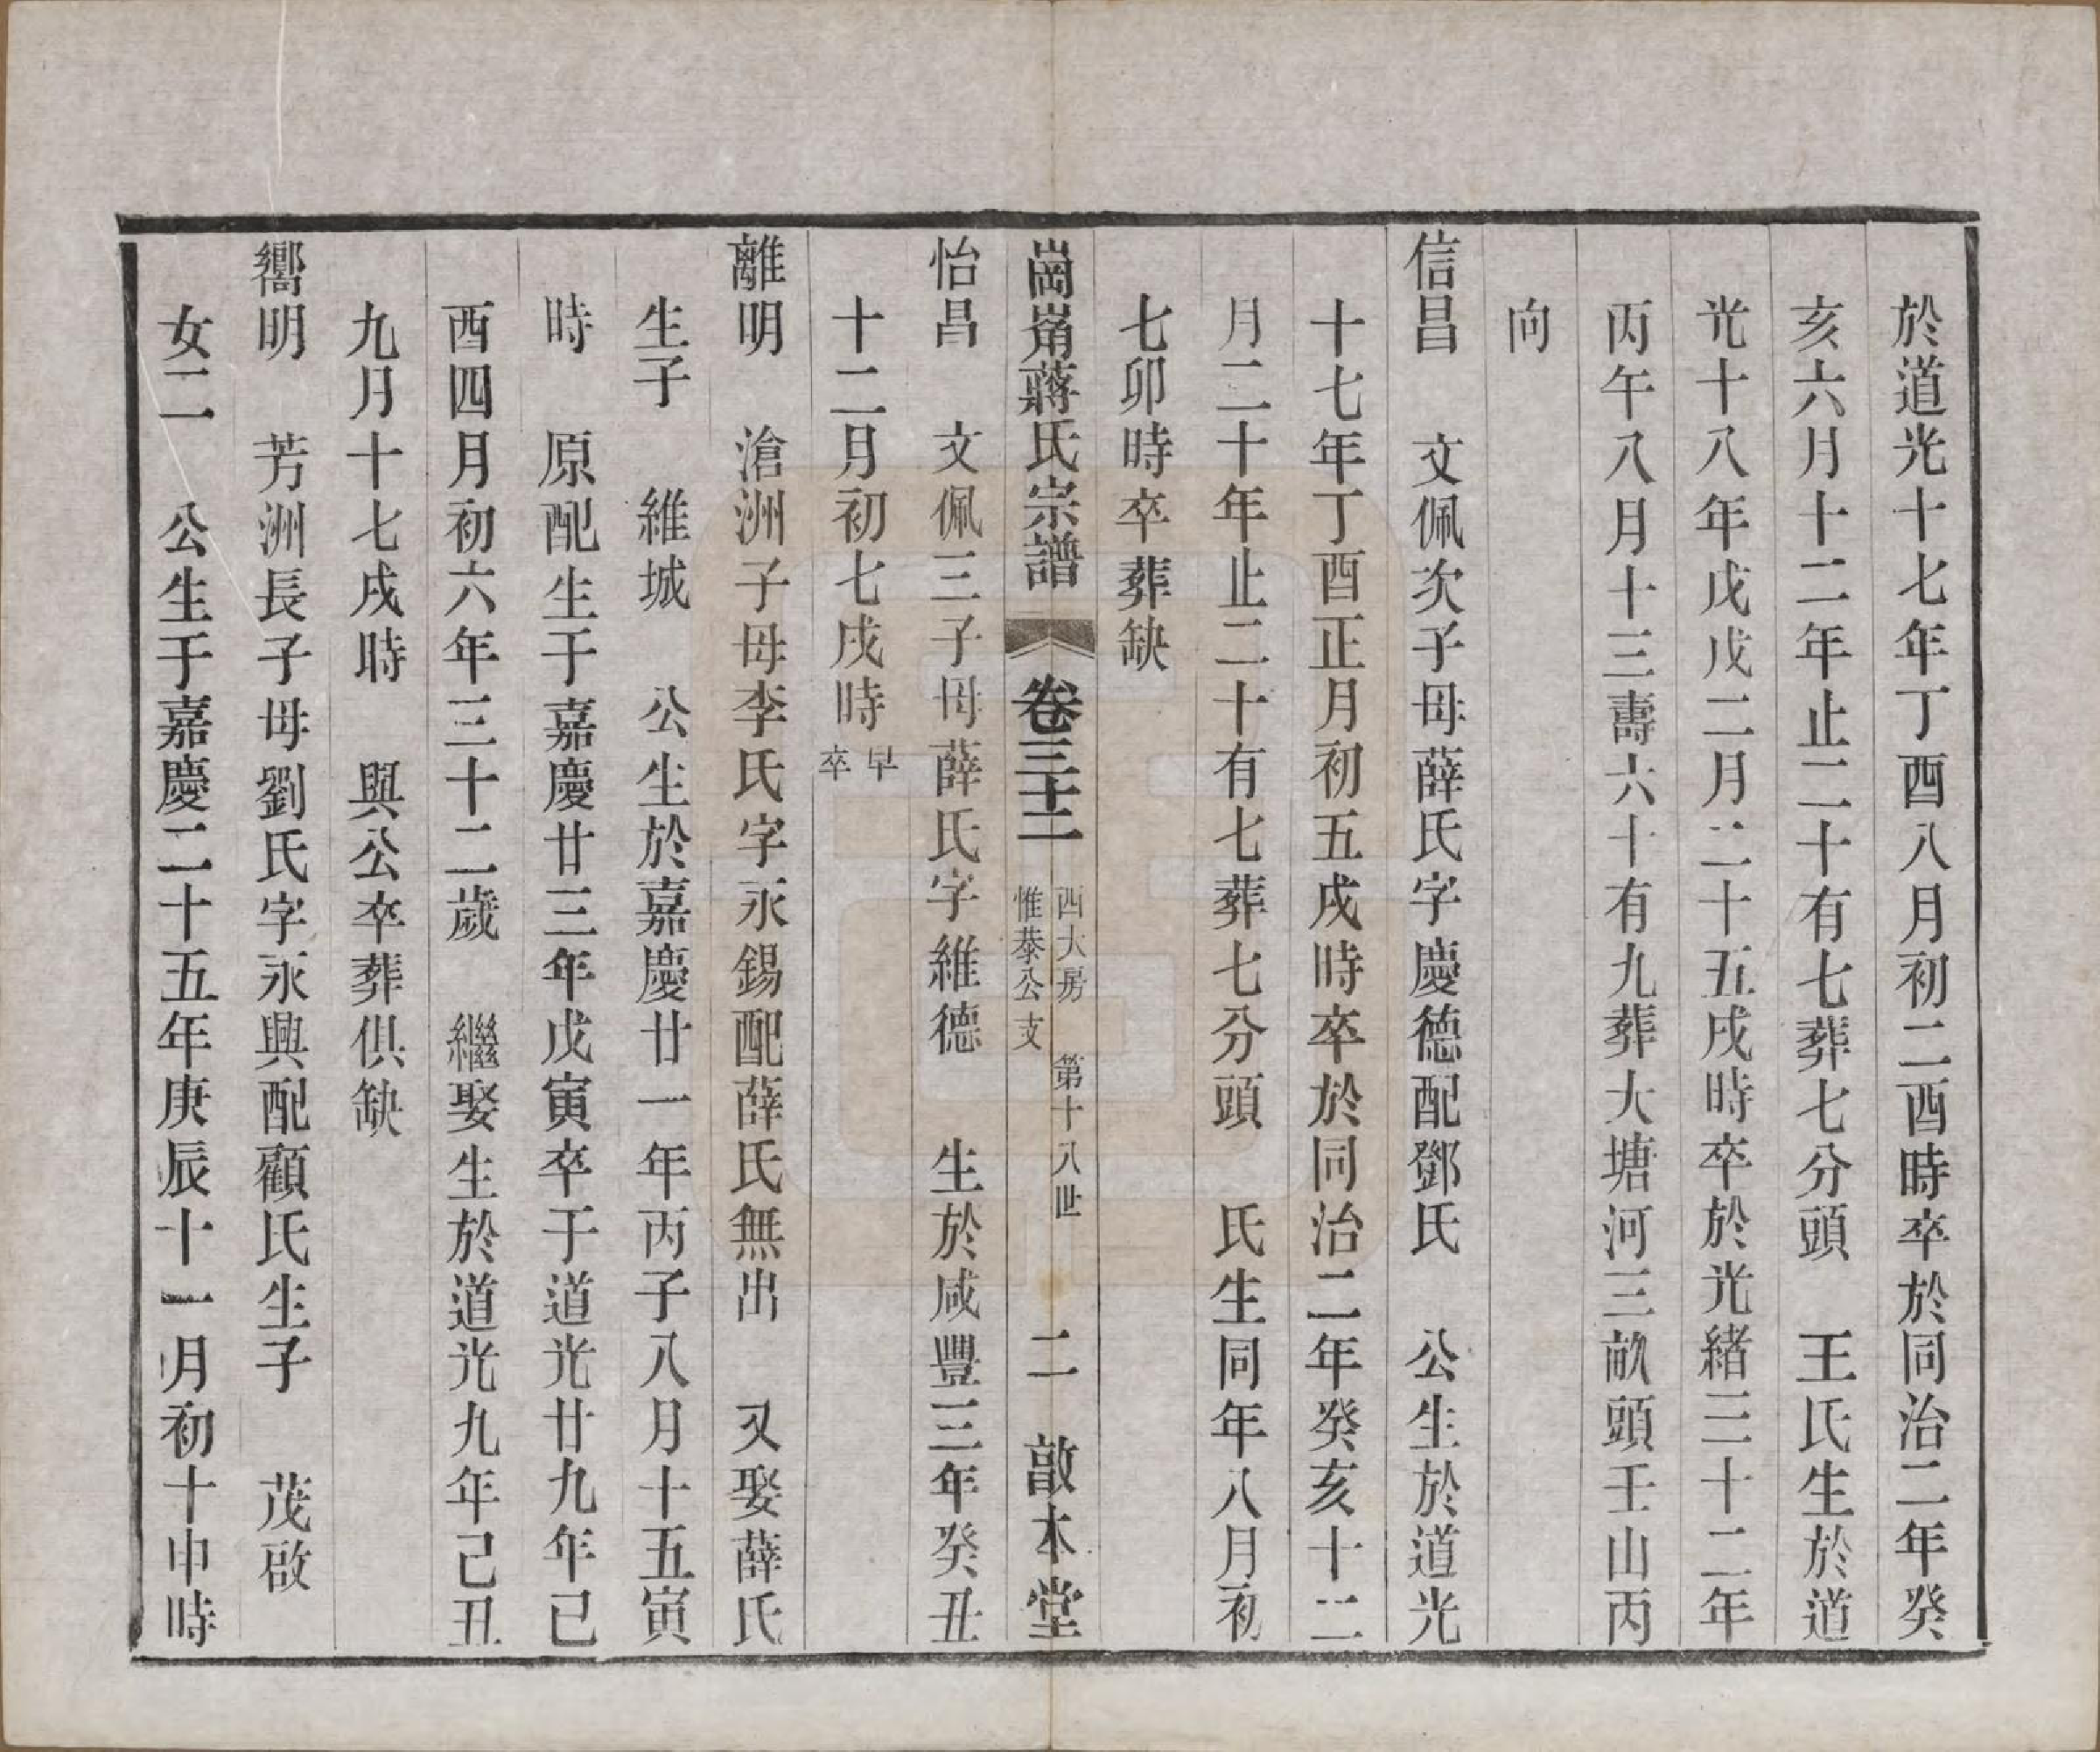 於道光十七年丁酉八月初二酉時卒於同治二年癸
亥六月十二年止二十有七葬七分頭　王氏生於道
光十八年戊戌二月二十五戌時卒於光緒三十二年
丙午八月十三壽六十有九葬大塘河三畝頭壬山丙
向
信昌　文佩次子母薛氏字慶德配鄧氏　公生於道光
十七年丁酉正月初五戌時卒於同治二年癸亥十二
月二十年止二十有七葬七分頭　氏生同年八月初
七卯時卒葬缺
崗崤蔣氏宗譜　卷三十二　西大房　惟恭公支　第十八世　二　敦本堂
怡昌　文佩三子母薛氏字維德　生於咸豐三年癸丑
十二月初七戌時早卒
離明　滄洲子母李氏字永錫配薛氏無出　又娶薛氏
生子　維城　公生於嘉慶廿一年丙子八月十五寅
時　原配生于嘉慶廿三年戊寅卒于道光廿九年己
酉四月初六年三十二歲　繼娶生於道光九年己丑
九月十七戌時　與公卒葬俱缺
嚮明　芳洲長子母劉氏字永興配顧氏生子　茂啟
女二　公生于嘉慶二十五年庚辰十一月初十申時